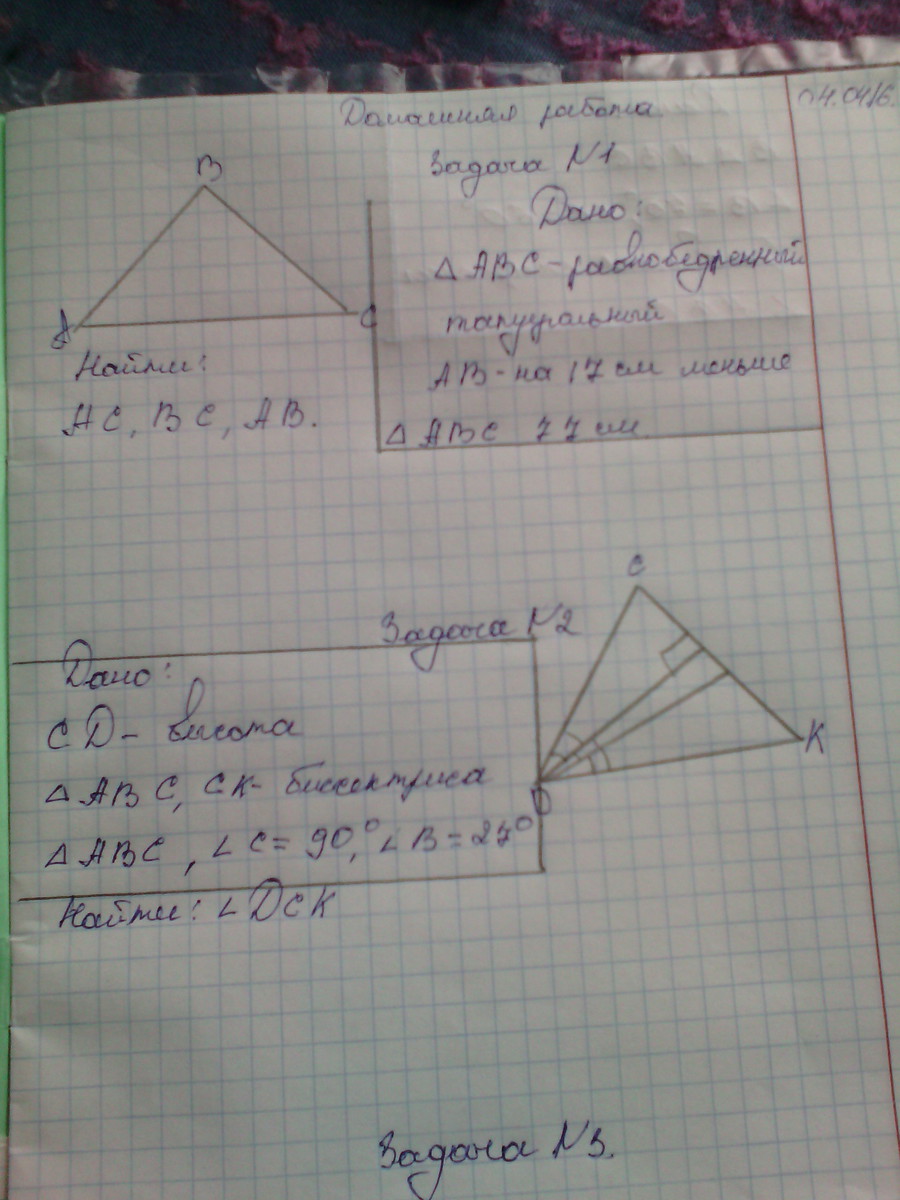 Домашняя работа
04.04.16.
Задача N1
B
A
C
Дано:
△ ABC - равнобедренный
тапуугольный
AB - на 17 см меньше
△ ABC 77 см.
Найти:
AC, BC, AB.
Задача N2
C
K
D
Дано:
CD - высота
△ ABC, CK - биссектриса
△ ABC, ∠ C = 90°, ∠ B = 27°
Найти: ∠ DCK
Задача N3.